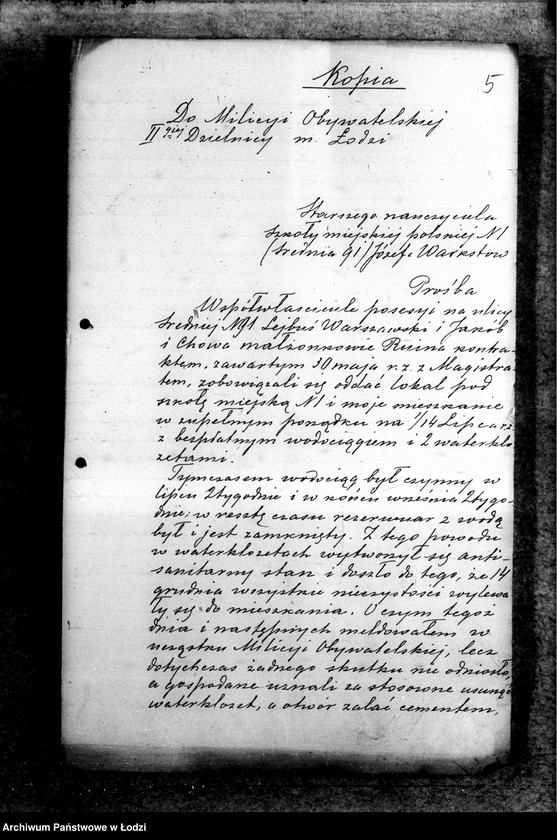 Kopia
5
Do Milicyi Obywatelskiej
II giej Dzielnicy m. Łodzi
Starszego nauczyciela
szkoły miejskiej polskiej N1
(Średnia 91) Józefa
Prośba
Współwłaściciele posesyi na ulicy
Średniej N91 Lejbuś Warszawski i Jakób
i Chowa małżonkowie kontra-
ktem, zawartym 30 maja r.z. z Magistra-
tem, zobowiązali się oddać lokal pod
szkołę miejską N1 i moje mieszkanie
w zupełnym porządku na 1/14 Lipca r.z.
z bezpłatnym wodociągiem i 2 waterklo-
zetami.
Tymczasem wodociąg był czynny w
lipcu 2 tygodnie i w końcu września 2 tygo-
dnie; w resztę czasu rezerwuar z wodą
był i jest zamknięty. Z tego powodu
w waterklozetach wytworzył się anti-
sanitarny stan i doszło do tego, że 14
grudnia wszystkie nieczystości wylewa-
ły się do mieszkania. O czym tegoż
dnia i następnych meldowałem w
urzędzie Milicyi Obywatelskiej, lecz
dotychczas żadnego skutku nie odniosło,
a gospodarze uznali za stosowne usunąć
waterklozet, a otwór zalać cementem,
Archiwum Państwowe w Łodzi